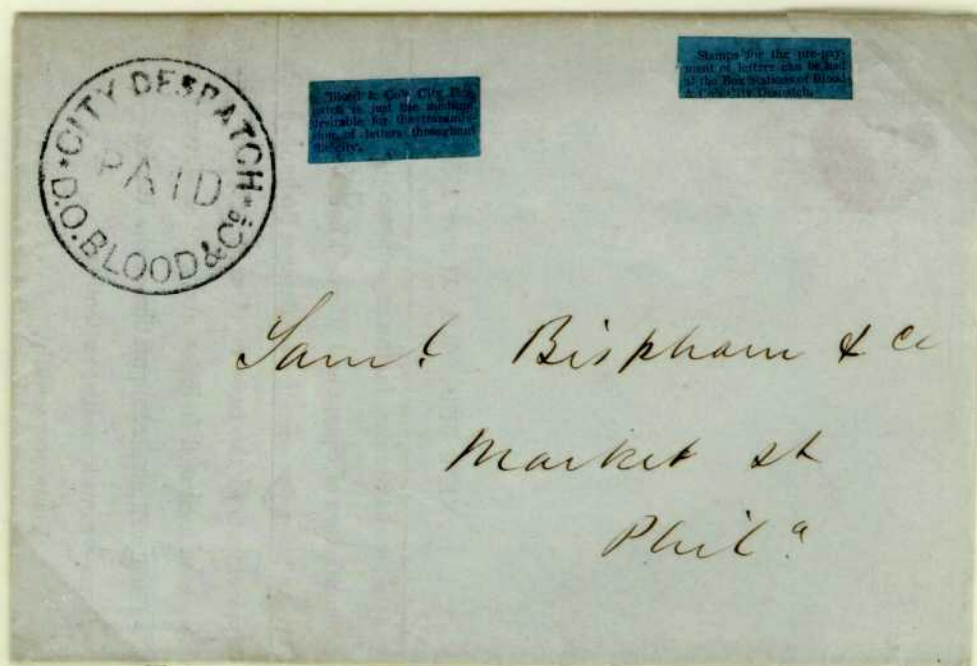 *CITY DESPATCH*
PAID
D.O.BLOOD & Cº
Blood & Co's City Des-
patch is just the medium
desirable for the transmis-
sion of letters throughout
the city.
Stamps for the pre-pay-
ment of letters can be had
at the Box Stations of Blood
& Co's City Despatch.
Saml. Bispham & Co
Market st
Phila